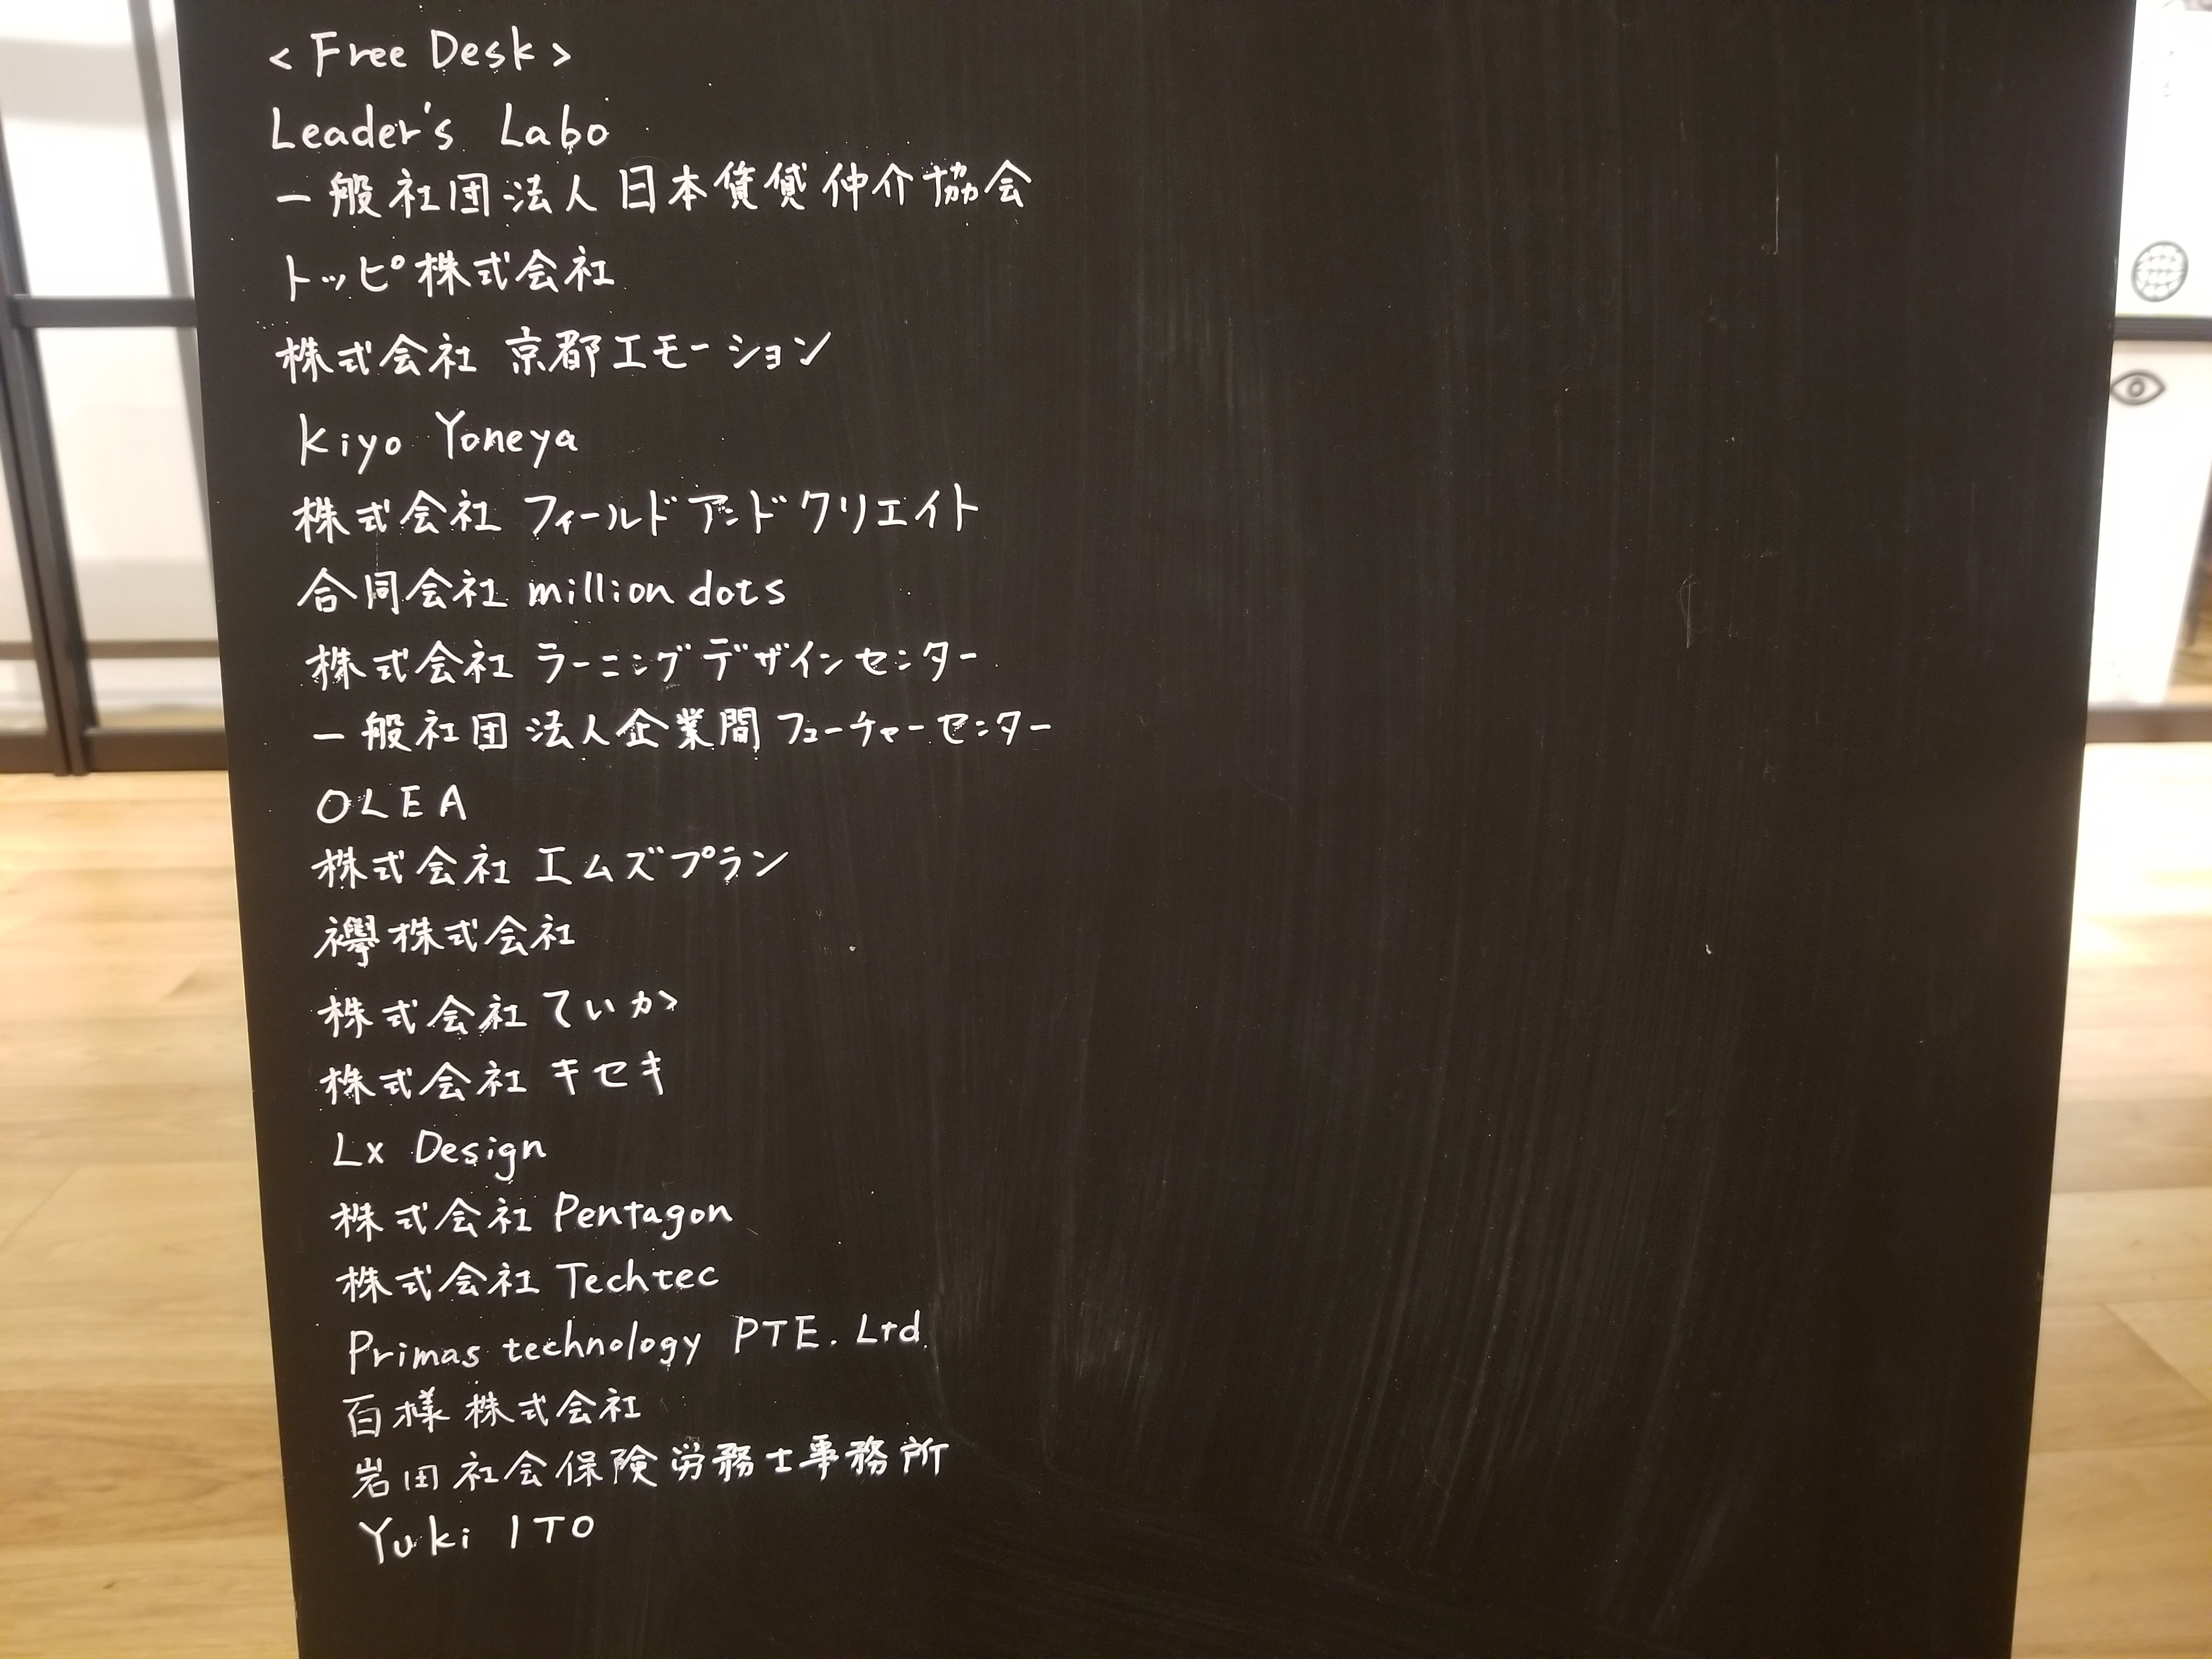 <Free Desk>
Leader's Labo
一般社団法人 日本賃貸仲介協会
トッピ株式会社
株式会社 京都エモーション
Kiyo Yoneya
株式会社 フィールドアンドクリエイト
合同会社 million dots
株式会社 ラーニングデザインセンター
一般社団法人企業間フューチャーセンター
OLEA
株式会社 エムズプラン
襷株式会社
株式会社 ていか
株式会社 キセキ
Lx Design
株式会社 Pentagon
株式会社 Techtec
Primas technology PTE. Ltd.
百様株式会社
岩田社会保険労務士事務所
Yuki ITO